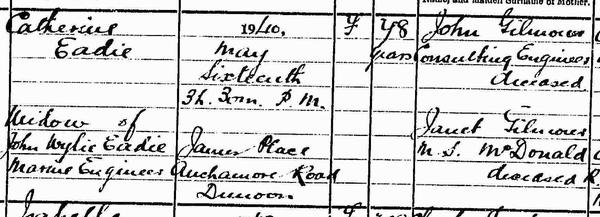 Name, and Maiden Surname of Mother.
Catherine
Eadie
Widow of
John Wylie Eadie
Marine Engineer
1940,
May
Sixteenth
3h. 30m. P M.
James Place
Auchamore Road
Dunoon
F
78
years
John Gilmour
Consulting Engineer
deceased
Janet Gilmour
M. S. McDonald
deceased
Isabella